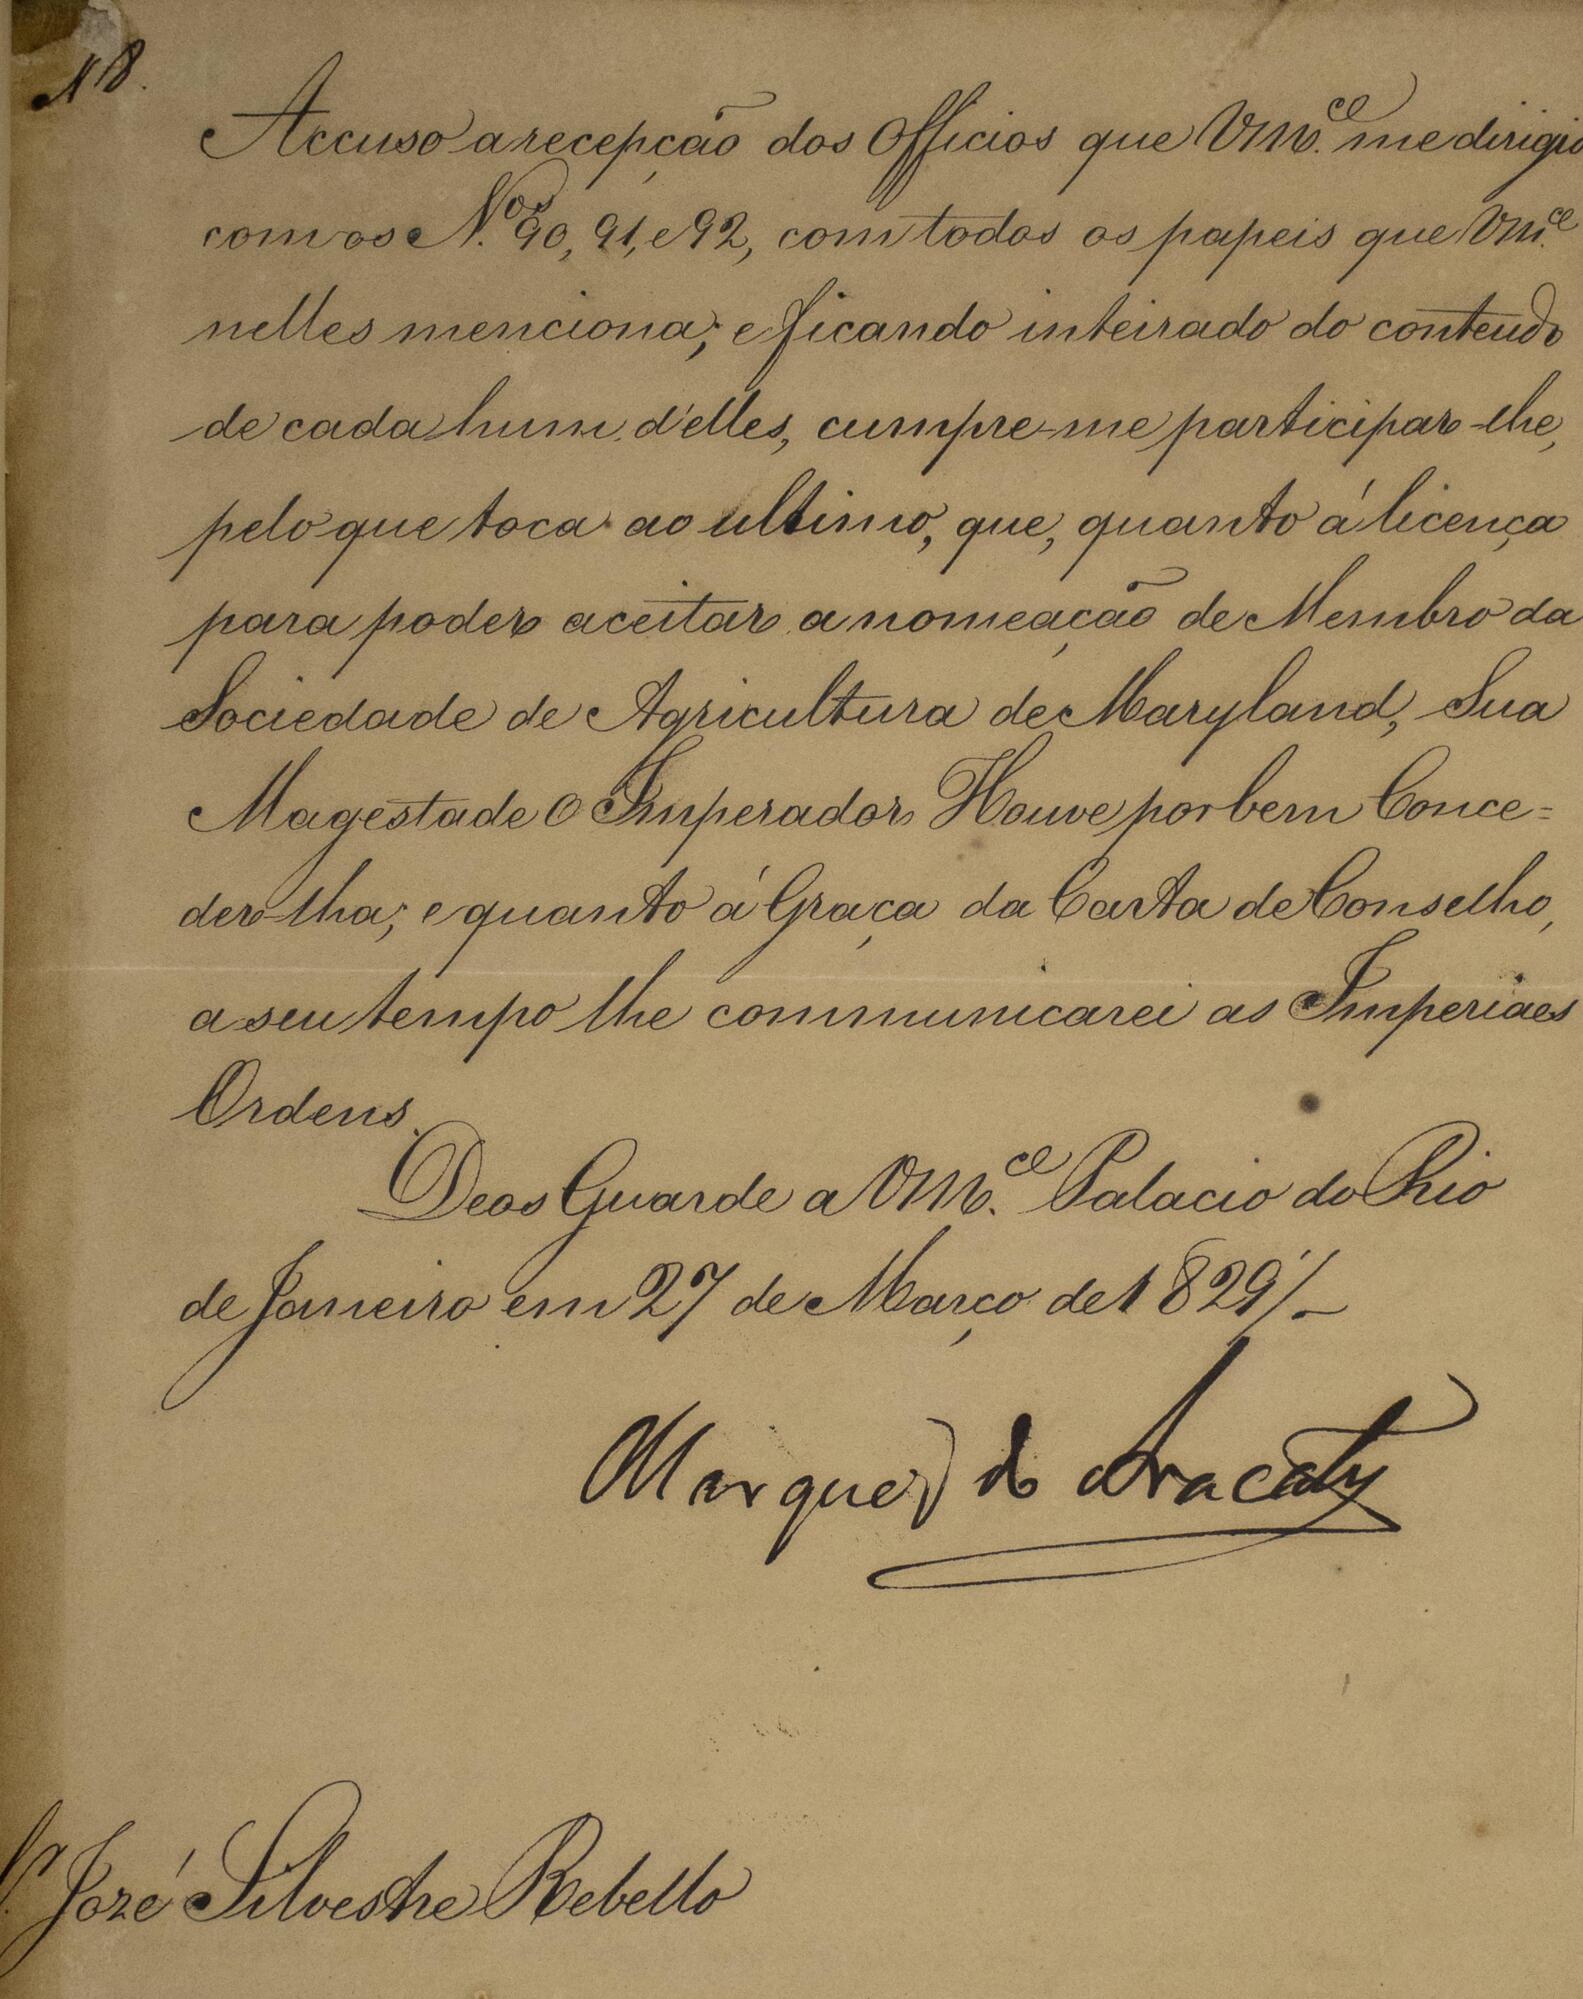 N 8.
Accuso a recepção dos Officios que Vm.ce me dirigio
com os N.os 90, 91, e 92, com todos os papeis que Vm.ce
nelles menciona; e ficando inteirado do conteudo
de cada hum d'elles, cumpre-me participar-lhe,
pelo que toca ao ultimo, que, quanto á licença
para poder aceitar a nomeação de Membro da
Sociedade de Agricultura de Maryland, Sua
Magestade O Imperador Houve por bem Conce=
der-lha; e quanto á Graça da Carta de Conselho,
a seu tempo lhe communicarei as Imperiaes
Ordens.
Deos Guarde a Vm.ce Palacio do Rio
de Janeiro em 27 de Março de 1829/-
Marquez de Aracaty
Sr José Silvestre Rebello